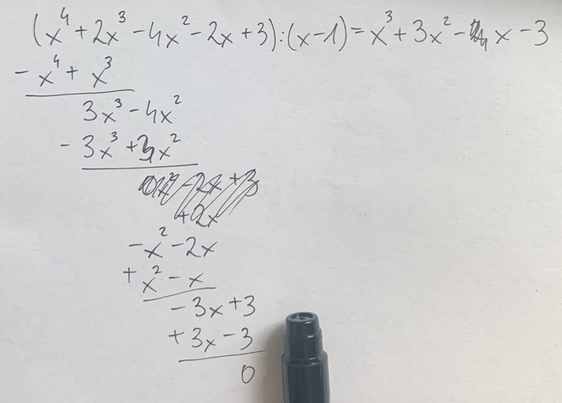 (x⁴+2x³-4x²-2x+3):(x-1)=x³+3x²-x-3
-x⁴+x³
3x³-4x²
-3x³+3x²
-x²-2x
+x²-x
-3x+3
+3x-3
0